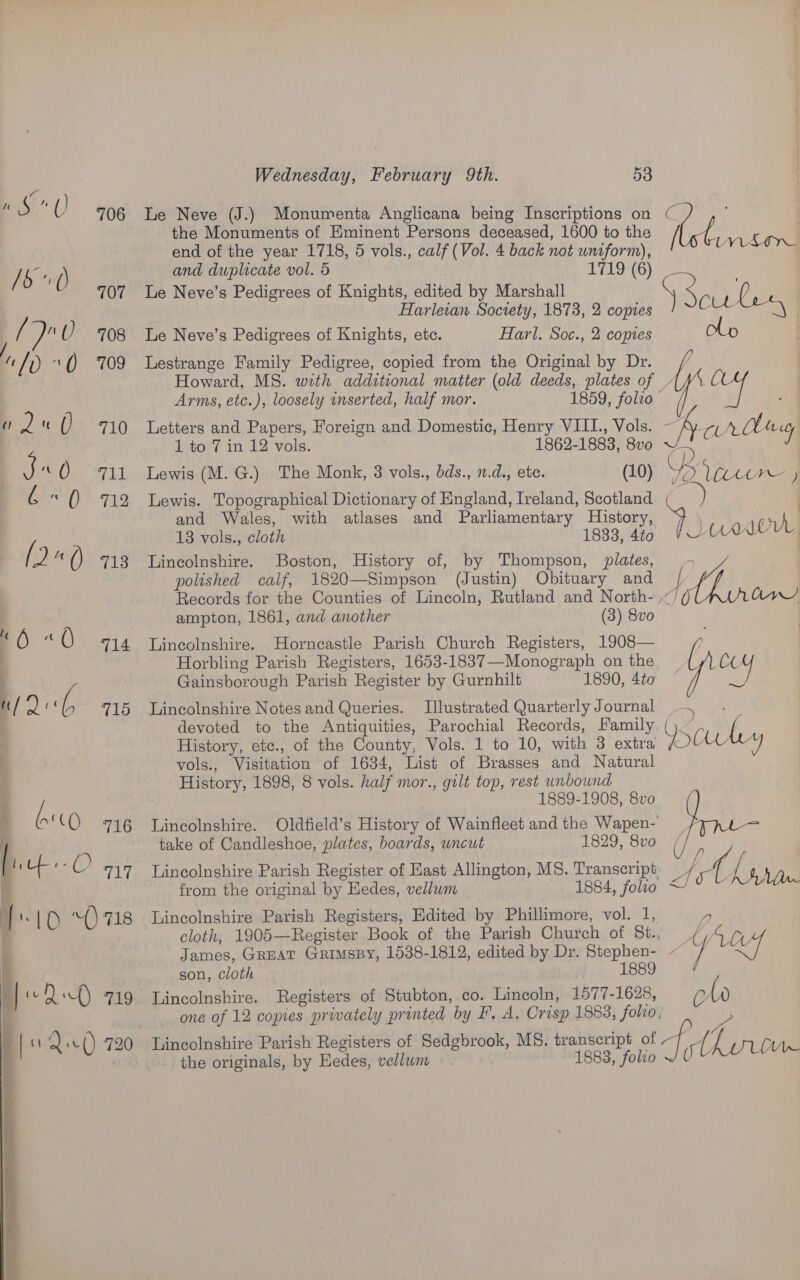 Wednesday, February 9th. 53
" 5 " 0 706 Le Neve (J.) Monumenta Anglicana being Inscriptions on
the Monuments of Eminent Persons deceased, 1600 to the
end of the year 1718, 5 vols., calf (Vol. 4 back not uniform),
and duplicate vol. 5 1719 (6) Robinson
707 Le Neve's Pedigrees of Knights, edited by Marshall
Harleian Society, 1873, 2 copies
708 Le Neve's Pedigrees of Knights, etc. Harl. Soc., 2 copies do
709 Lestrange Family Pedigree, copied from the Original by Dr.
Howard, MS. with additional matter (old deeds, plates of
Arms, etc.), loosely inserted, half mor. 1859, folio Gray
" 2 " 0 710 Letters and Papers, Foreign and Domestic, Henry VIII., Vols.
1 to 7 in 12 vols. 1862-1883, 8vo
711 Lewis (M. G.) The Monk, 3 vols., bds., n.d., etc. (10)
6 " 0 712 Lewis. Topographical Dictionary of England, Ireland, Scotland
and Wales, with atlases and Parliamentary History,
13 vols., cloth 1833, 4to
12 " 0 713 Lincolnshire. Boston, History of, by Thompson, plates,
polished calf, 1820—Simpson (Justin) Obituary and
Records for the Counties of Lincoln, Rutland and North-
ampton, 1861, and another (3) 8vo
" 6 " 0 714 Lincolnshire. Horncastle Parish Church Registers, 1908—
Horbling Parish Registers, 1653-1837—Monograph on the
Gainsborough Parish Register by Gurnhilt 1890, 4to Gray
715 Lincolnshire Notes and Queries. Illustrated Quarterly Journal
devoted to the Antiquities, Parochial Records, Family
History, etc., of the County, Vols. 1 to 10, with 3 extra
vols., Visitation of 1634, List of Brasses and Natural
History, 1898, 8 vols. half mor., gilt top, rest unbound
1889-1908, 8vo
716 Lincolnshire. Oldfield's History of Wainfleet and the Wapen-
take of Candleshoe, plates, boards, uncut 1829, 8vo
717 Lincolnshire Parish Register of East Allington, MS. Transcript,
from the original by Eedes, vellum 1884, folio
718 Lincolnshire Parish Registers, Edited by Phillimore, vol. 1,
cloth, 1905—Register Book of the Parish Church of St.
James, GREAT GRIMSBY, 1538-1812, edited by Dr. Stephen-
son, cloth 1889 Gray
719 Lincolnshire. Registers of Stubton, co. Lincoln, 1577-1628,
one of 12 copies privately printed by F. A. Crisp 1883, folio, do
720 Lincolnshire Parish Registers of Sedgbrook, MS. transcript of
the originals, by Eedes, vellum 1883, folio